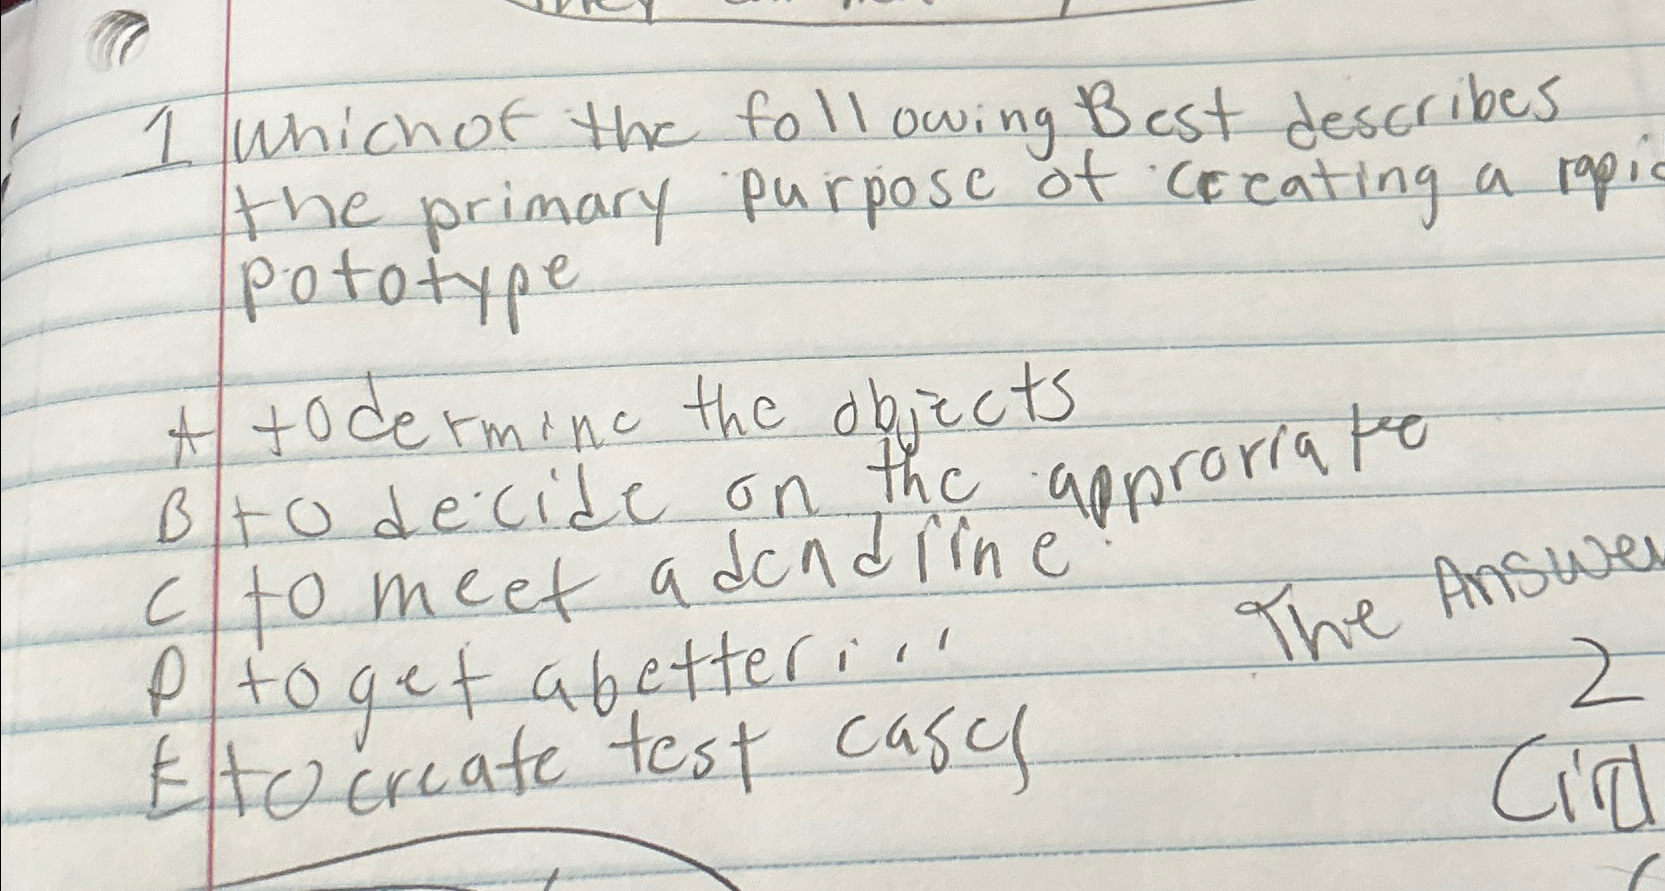 1 which of the following Best describes
the primary purpose of creating a
pototype
A to dermine the objects
B to decide on the approriate
C to meet a deadline
D to get a better...
E to create test cases
The Answer
2